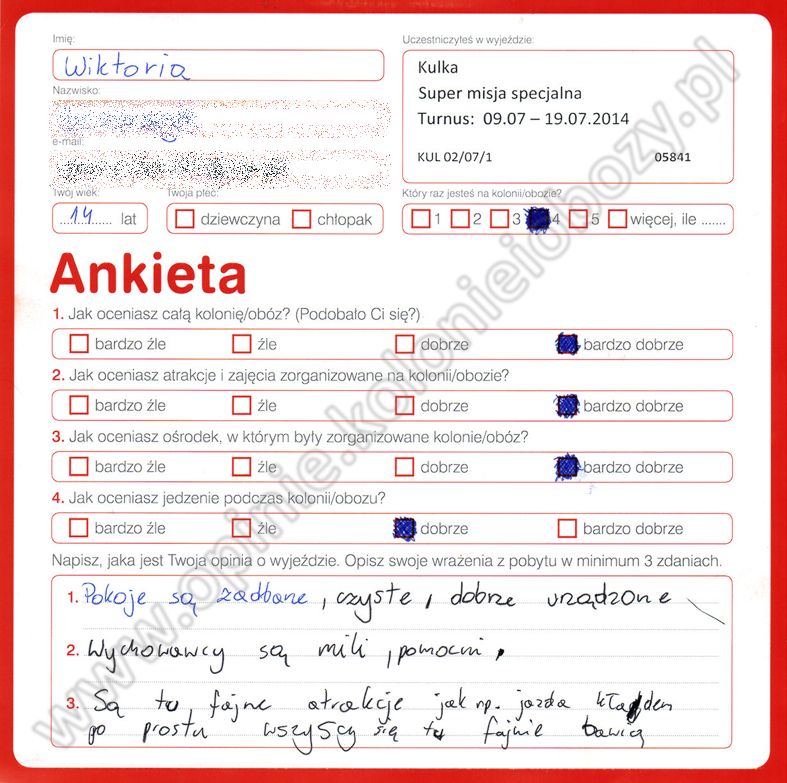 Imię:
Wiktoria
Uczestniczyłeś w wyjeździe:
Kulka
Super misja specjalna
Turnus: 09.07 – 19.07.2014
KUL 02/07/1 05841
Nazwisko:
e-mail:
Twój wiek:
14 lat
Twoja płeć:
dziewczyna chłopak
Który raz jesteś na kolonii/obozie?
1 2 3 4 5 więcej, ile .......
Ankieta
1. Jak oceniasz całą kolonię/obóz? (Podobało Ci się?)
bardzo źle źle dobrze bardzo dobrze
2. Jak oceniasz atrakcje i zajęcia zorganizowane na kolonii/obozie?
bardzo źle źle dobrze bardzo dobrze
3. Jak oceniasz ośrodek, w którym były zorganizowane kolonie/obóz?
bardzo źle źle dobrze bardzo dobrze
4. Jak oceniasz jedzenie podczas kolonii/obozu?
bardzo źle źle dobrze bardzo dobrze
Napisz, jaka jest Twoja opinia o wyjeździe. Opisz swoje wrażenia z pobytu w minimum 3 zdaniach.
1. Pokoje są zadbane, czyste, dobrze urządzone
2. Wychowawcy są mili, pomocni.
3. Są tu fajne atrakcje jak np. jazda
po prostu wszyscy się tu fajnie bawią
www.opinie.kolonieiobozy.pl